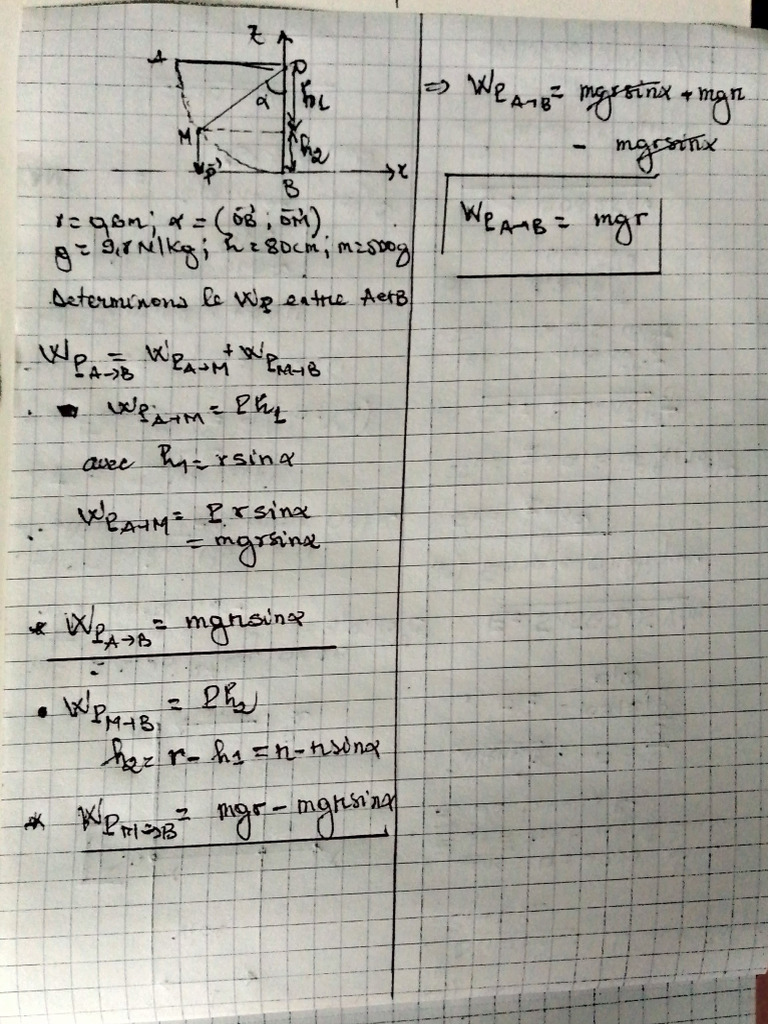 Z
A
O
α
h1
M
h2
P⃗
x
B
r = 0,8m; α = (OB⃗; OM⃗)
g = 9,8N/kg; h = 80cm; m = 500g
Determinons le Wp entre A et B
WP A→B = WP A→M + WP M→B
WP A→M = Ph1
avec h1 = r sinα
WP A→M = P r sinα
= mgrsinα
* WP A→B = mgrsinα
• WP M→B = Ph2
h2 = r - h1 = r - rsinα
* WP M→B = mgr - mgrsinα
⇒ WP A→B = mgrsinα + mgr
- mgrsinα
WP A→B = mgr